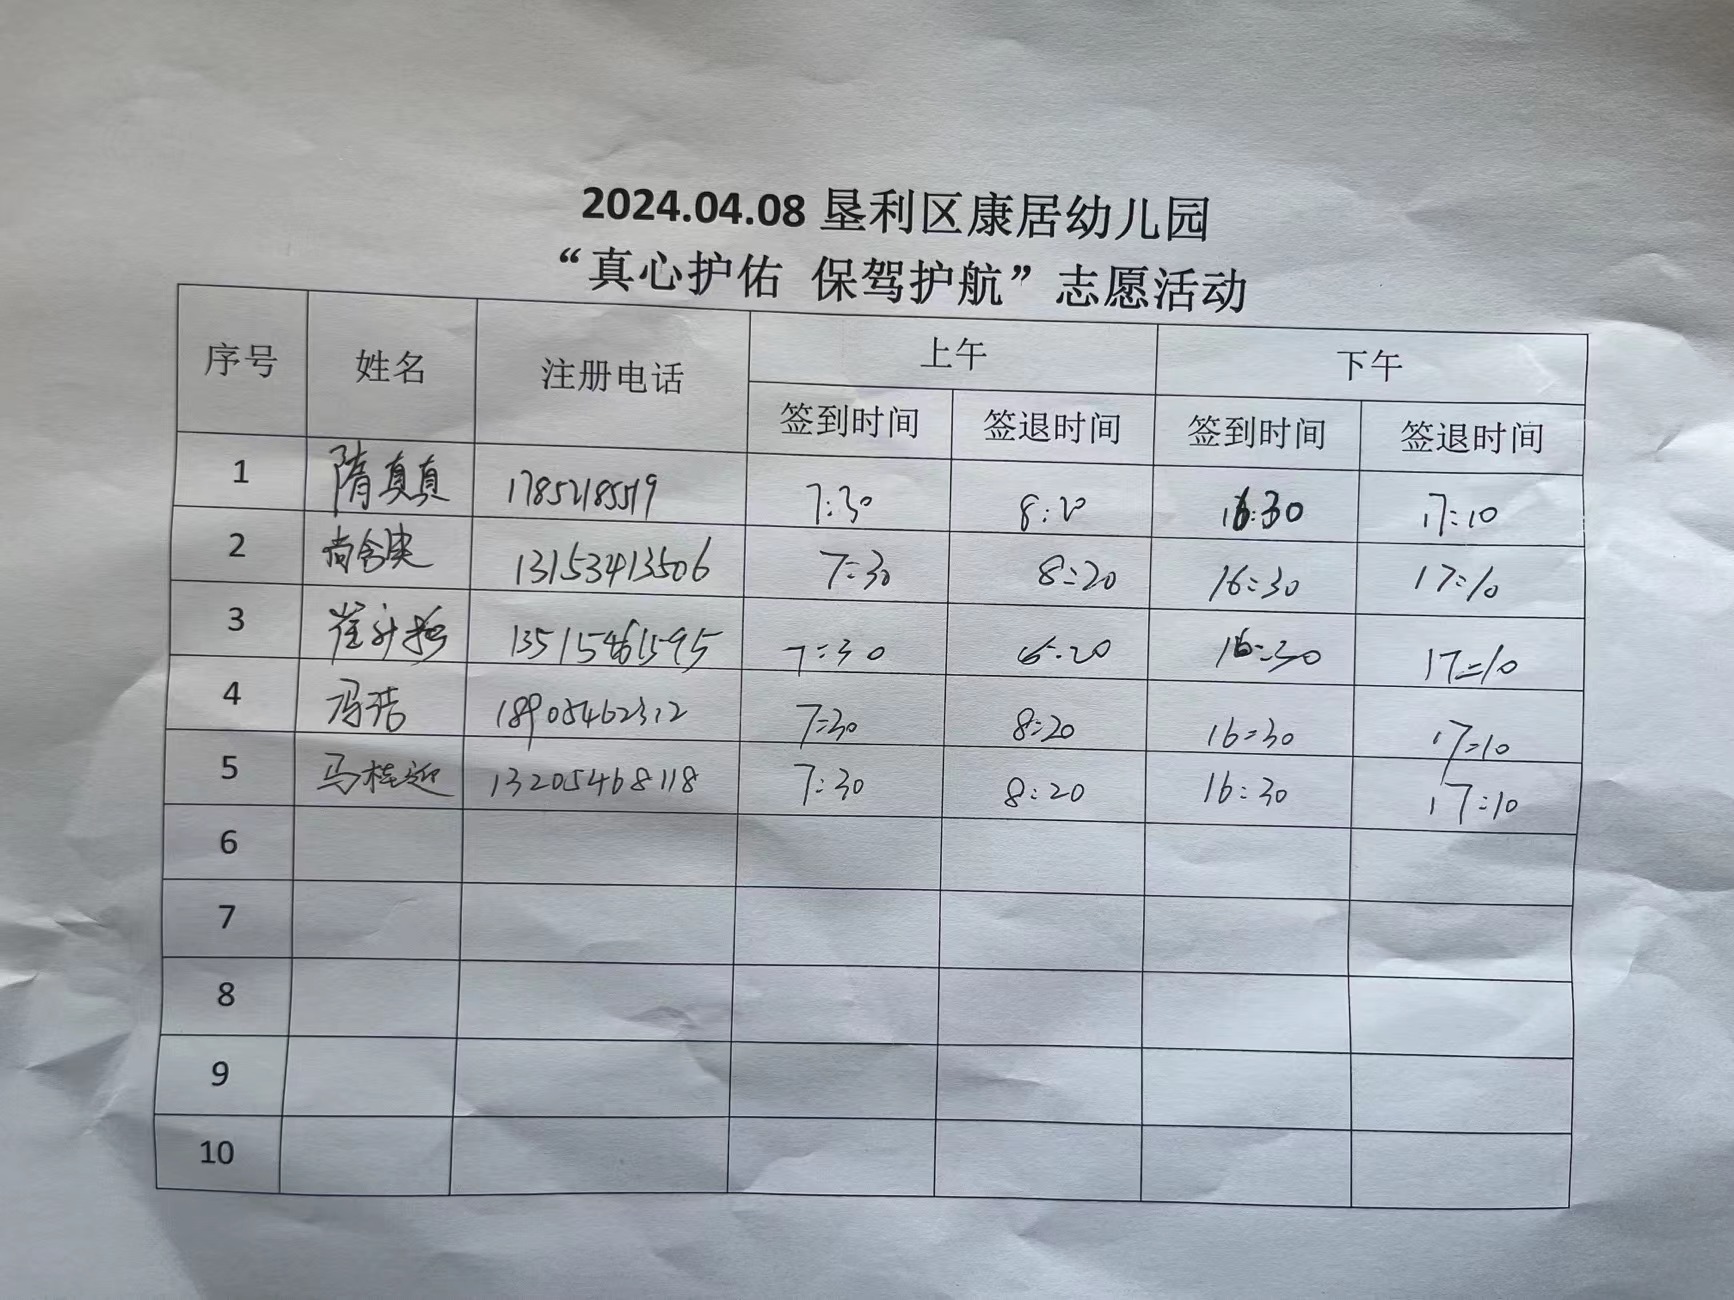 2024.04.08 垦利区康居幼儿园
“真心护佑 保驾护航”志愿活动
序号 姓名 注册电话 上午 下午
签到时间 签退时间 签到时间 签退时间
1 隋真真 17852185519 7:30 8:20 16:30 17:10
2 13153413506 7:30 8:20 16:30 17:10
3 崔 13515461595 7:30 20 16:30 17:10
4 冯浩 18905462312 7:30 8:20 16:30 17:10
5 马桂迎 13205468118 7:30 8:20 16:30 17:10
6
7
8
9
10